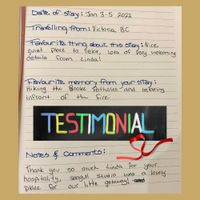 Date of stay: Jan 3-5 2022
Travelling from: Victoria, BC
Favourite thing about this stay: Nice,
quiet place to relax, lots of very welcoming
details from Linda!
Favourite memory from your stay:
Hiking the Sooke Potholes and relaxing
infront of the fire.
TESTIMONIAL
Notes & Comments:
Thank you so much Linda for your
hospitality, Seagull Studio was a lovely
place for our little getaway!